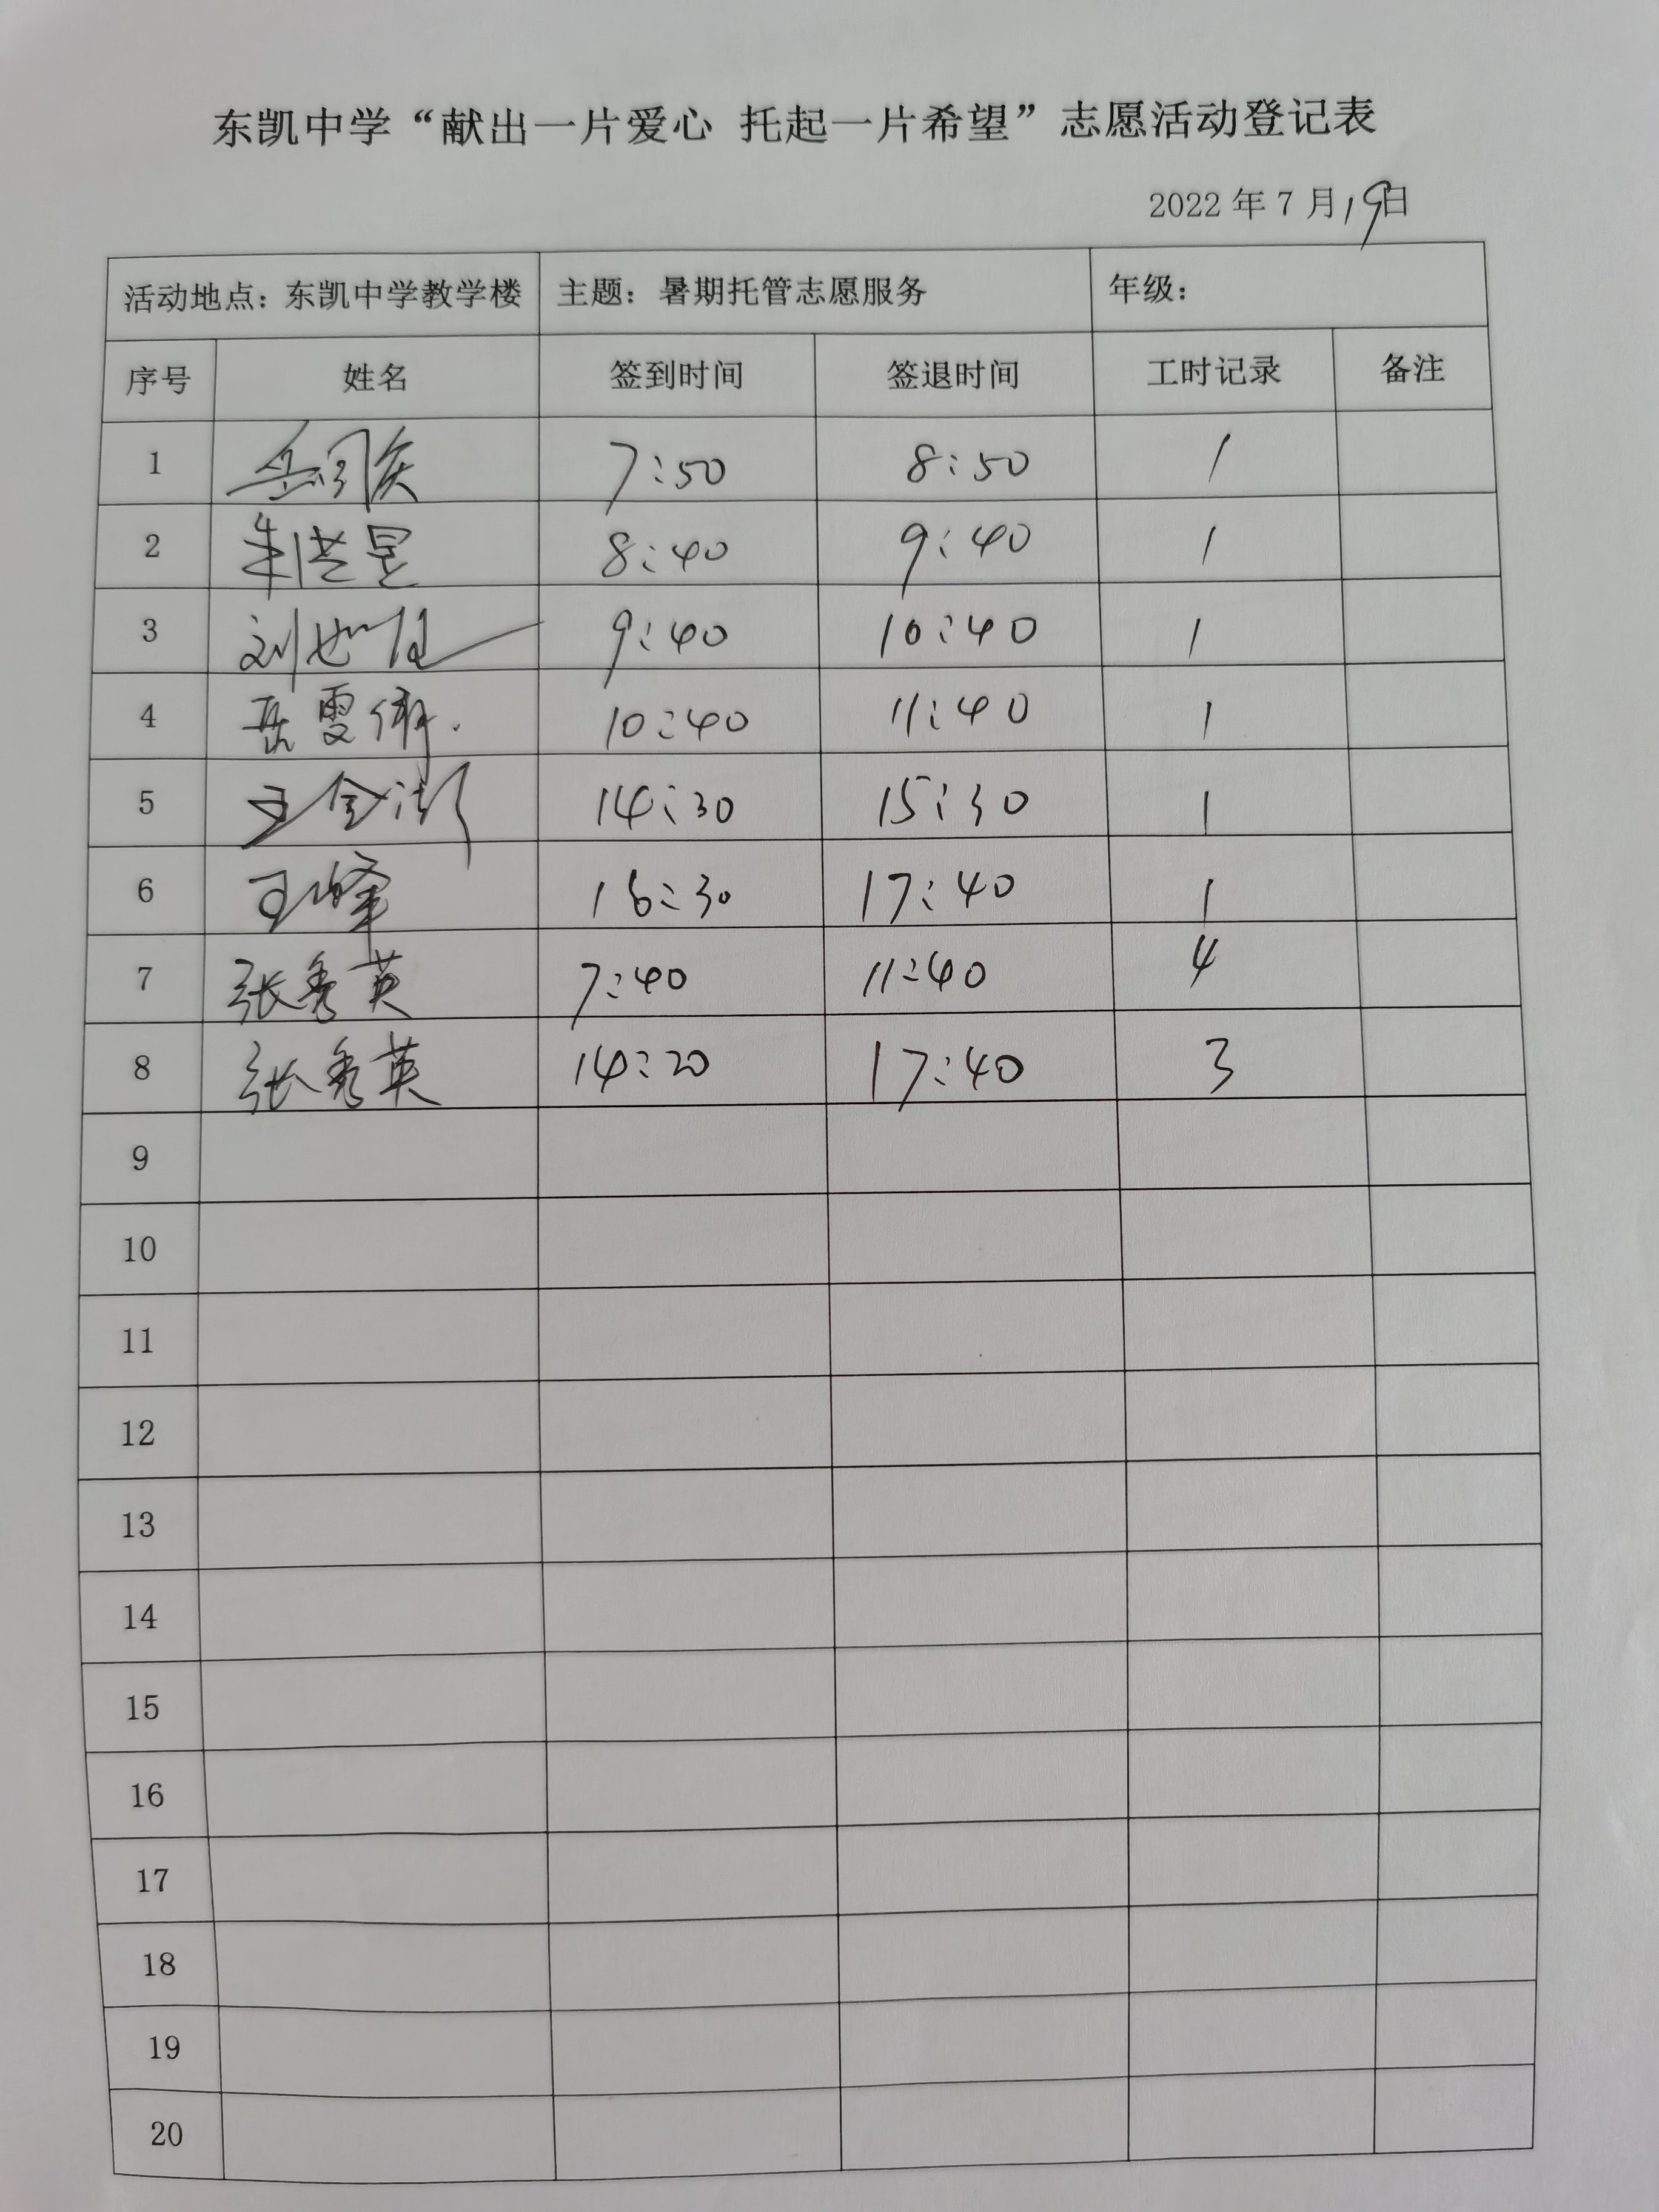 东凯中学“献出一片爱心 托起一片希望”志愿活动登记表
2022 年 7 月19日
活动地点：东凯中学教学楼 主题：暑期托管志愿服务 年级：
序号 姓名 签到时间 签退时间 工时记录 备注
1 7:50 8:50 1
2 朱 8:40 9:40 1
3 刘 9:40 10:40 1
4 10:40 11:40 1
5 王金 14:30 15:30 1
6 王峰 16:30 17:40 1
7 张秀英 7:40 11:40 4
8 张秀英 14:20 17:40 3
9
10
11
12
13
14
15
16
17
18
19
20